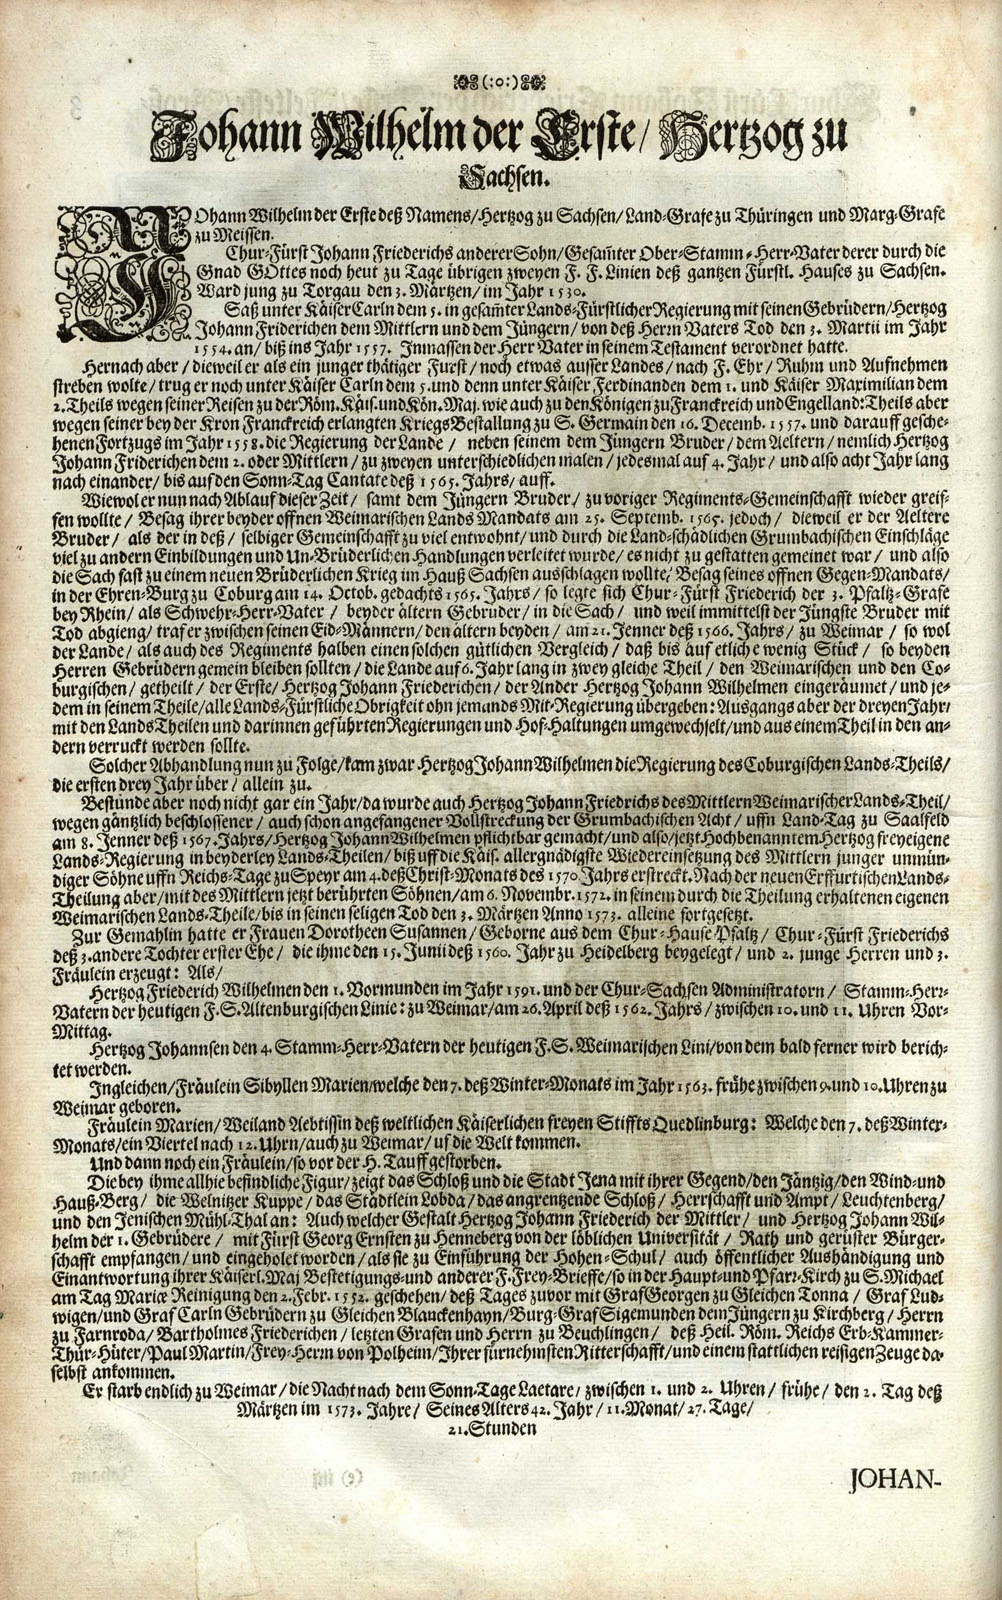 (:o:)
Johann Wilhelm der Erste/ Hertzog zu
Sachsen.
JOhann Wilhelm der Erste deß Namens/Hertzog zu Sachsen/Land-Grafe zu Thüringen und Marg-Grafe
zu Meissen.
Chur-Fürst Johann Friederichs anderer Sohn/Gesam̃ter Ober-Stamm-Herr-Vater derer durch die
Gnad GOttes noch heut zu Tage übrigen zweyen F. F. Linien deß gantzen Fürstl. Hauses zu Sachsen.
Ward jung zu Torgau den 3. Märtzen/im Jahr 1530.
Saß unter Käiser Carln dem 5. in gesam̃ter Lands-Fürstlicher Regierung mit seinen Gebrüdern/Hertzog
Johann Friderichen dem Mittlern und dem Jüngern/von deß Herrn Vaters Tod den 3. Martii im Jahr
1554.an/biß ins Jahr 1557. Inmassen der Herr Vater in seinem Testament verordnet hatte.
Hernach aber/dieweil er als ein junger thätiger Fürst/noch etwas ausser Landes/nach F. Ehr/Ruhm und Aufnehmen
streben wolte/trug er noch unter Käiser Carln dem 5.und denn unter Käiser Ferdinanden dem 1. und Käiser Maximilian dem
2.Theils wegen seiner Reisen zu der Röm.Käis.und Kön.Maj.wie auch zu den Königen zu Franckreich und Engelland:Theils aber
wegen seiner bey der Kron Franckreich erlangten Kriegs Bestallung zu S. Germain den 16. Decemb. 1557.und darauff gesche-
henen Fortzugs im Jahr 1558.die Regierung der Lande/ neben seinem dem Jüngern Bruder/dem Aeltern/nemlich Hertzog
Johann Friderichen dem 2. oder Mittlern/zu zweyen unterschiedlichen malen/jedesmal auf 4. Jahr/und also acht Jahr lang
nach einander/bis auf den Sonn-Tag Cantate deß 1565. Jahrs/auff.
Wiewol er nun nach Ablauf dieser Zeit/ samt dem Jüngern Bruder/zu voriger Regiments-Gemeinschafft wieder greif-
fen wollte/ Besag ihrer beyder offnen Weimarischen Lands Mandats am 25. Septemb. 1565. jedoch/ dieweil er der Aeltere
Bruder/ als der in deß/ selbiger Gemeinschafft zu viel entwohnt/und durch die Land-schädlichen Grumbachischen Einschläge
viel zu andern Einbildungen und Un-Brüderlichen Handlungen verleitet wurde/es nicht zu gestatten gemeinet war/ und also
die Sach fast zu einem neuen Brüderlichen Krieg im Hauß Sachsen ausschlagen wollte/Besag seines offnen Gegen-Mandats/
in der Ehren-Burg zu Coburg am 14. Octob. gedachts 1565. Jahrs/ so legte sich Chur-Fürst Friederich der 3. Pfaltz-Grafe
bey Rhein/als Schwehr-Herr-Vater/ beyder ältern Gebrüder/in die Sach/ und weil immittelst der Jüngste Bruder mit
Tod abgieng/traf er zwischen seinen Eid-Männern/den ältern beyden/am 21. Jenner deß 1566. Jahrs/zu Weimar/ so wol
der Lande/als auch des Regiments halben einen solchen gütlichen Vergleich/daß bis auf etliche wenig Stück/ so beyden
Herren Gebrüdern gemein bleiben sollten/die Lande auf 6.Jahr lang in zwey gleiche Theil/den Weimarischen und den Co-
burgischen/getheilt/der Erste/Hertzog Johann Friederichen/der Ander Hertzog Johann Wilhelmen eingeräumet/und je-
dem in seinem Theile/alle Lands-Fürstliche Obrigkeit ohn jemands Mit-Regierung übergeben: Ausgangs aber der dreyen Jahr/
mit den Lands Theilen und darinnen geführten Regierungen und Hof-Haltungen umgewechselt/und aus einem Theil in den an-
dern verruckt werden sollte.
Solcher Abhandlung nun zu Folge/kam zwar Hertzog Johann Wilhelmen die Regierung des Coburgischen Lands-Theils/
die ersten drey Jahr über/allein zu.
Bestünde aber noch nicht gar ein Jahr/da wurde auch Hertzog Johann Friedrichs des Mittlern Weimarischer Lands-Theil/
wegen gäntzlich beschlossener/auch schon angefangener Vollstreckung der Grumbachischen Acht/ uffn Land-Tag zu Saalfeld
am 8. Jenner deß 1567.Jahrs/Hertzog Johann Wilhelmen pflichtbar gemacht/und also/jetzt Hochbenanntem Hertzog freyeigene
Lands-Regierung in beyderley Lands-Theilen/biß uff die Käis. allergnädigste Wiedereinsetzung des Mittlern junger unmün-
diger Söhne uffn Reichs-Tage zu Speyr am 4.deß Christ-Monats des 1570 Jahrs erstreckt.Nach der neuen Erffurtischen Lands-
Theilung aber/mit des Mittlern jetzt berührten Söhnen/am 6. Novembr.1572. in seinem durch die Theilung erhaltenen eigenen
Weimarischen Lands-Theile/bis in seinen seligen Tod den 3. Märtzen Anno 1573. alleine fortgesetzt.
Zur Gemahlin hatte er Frauen Dorotheen Susannen/Geborne aus dem Chur-Hause Pfaltz/ Chur-Fürst Friederichs
deß 3.andere Tochter erster Ehe/ die ihme den 15. Junii deß 1560. Jahr zu Heidelberg beygelegt/und 2. junge Herren und 3.
Fräulein erzeugt: Als/
Hertzog Friederich Wilhelmen den 1. Vormunden im Jahr 1591.und der Chur-Sachsen Administratorn/ Stamm-Herr-
Vatern der heutigen F.S.Altenburgischen Linie:zu Weimar/am 26.April deß 1562.Jahrs/zwischen 10.und 11. Uhren Vor-
Mittag.
Hertzog Johannsen den 4. Stamm-Herr-Vatern der heutigen F.S. Weimarischen Lini/von dem bald ferner wird berich-
tet werden.
Ingleichen/Fräulein Sibyllen Marien/welche den 7. deß Winter-Monats im Jahr 1563. frühe zwischen 9.und 10.Uhren zu
Weimar geboren.
Fräulein Marien/Weiland Aebtissin deß weltlichen Käiserlichen freyen Stiffts Quedlinburg: Welche den 7. deß Winter-
Monats/ein Viertel nach 12.Uhrn/auch zu Weimar/uf die Welt kommen.
Und dann noch ein Fräulein/so vor der H.Tauff gestorben.
Die bey ihme allhie befindliche Figur/zeigt das Schloß und die Stadt Jena mit ihrer Gegend/den Jäntzig/den Wind-und
Hauß-Berg/ die Welnitzer Kuppe/das Städtlein Lobda/das angrentzende Schloß/Herrschafft und Ampt/Leuchtenberg/
und den Jenischen Mühl-Thal an: Auch welcher Gestalt Hertzog Johann Friederich der Mittler/ und Hertzog Johann Wil-
helm der 1. Gebrüdere/ mit Fürst Georg Ernsten zu Henneberg von der löblichen Universität/ Rath und gerüster Bürger-
schafft empfangen/und eingeholet worden/als sie zu Einführung der Hohen-Schul/ auch öffentlicher Aushändigung und
Einantwortung ihrer Käiserl.Maj Bestetigungs-und anderer F.Frey-Brieffe/so in der Haupt-und Pfarr-Kirch zu S.Michael
am Tag Mariæ Reinigung den 2.Febr.1552. geschehen/deß Tages zuvor mit Graf Georgen zu Gleichen Tonna/ Graf Lud-
wigen/und Graf Carln Gebrüdern zu Gleichen Blanckenhayn/Burg-Graf Sigemunden dem Jüngern zu Kirchberg/Herrn
zu Farnroda/Bartholmes Friederichen/letzten Grafen und Herrn zu Beuchlingen/ deß Heil. Röm. Reichs Erb-Kammer-
Thür-Hüter/Paul Martin/Frey-Herrn von Polheim/Ihrer fürnehmsten Ritterschafft/und einem stattlichen reisigen Zeuge da-
selbst ankommen.
Er starb endlich zu Weimar/die Nacht nach dem Sonn-Tage Laetare/zwischen 1. und 2. Uhren/ frühe/ den 2. Tag deß
Märtzen im 1573. Jahre/ Seines Alters 42. Jahr/11.Monat/27.Tage/
21.Stunden
JOHAN-